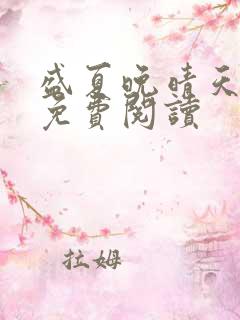 盛夏晚晴天
免費閱讀
拉姆